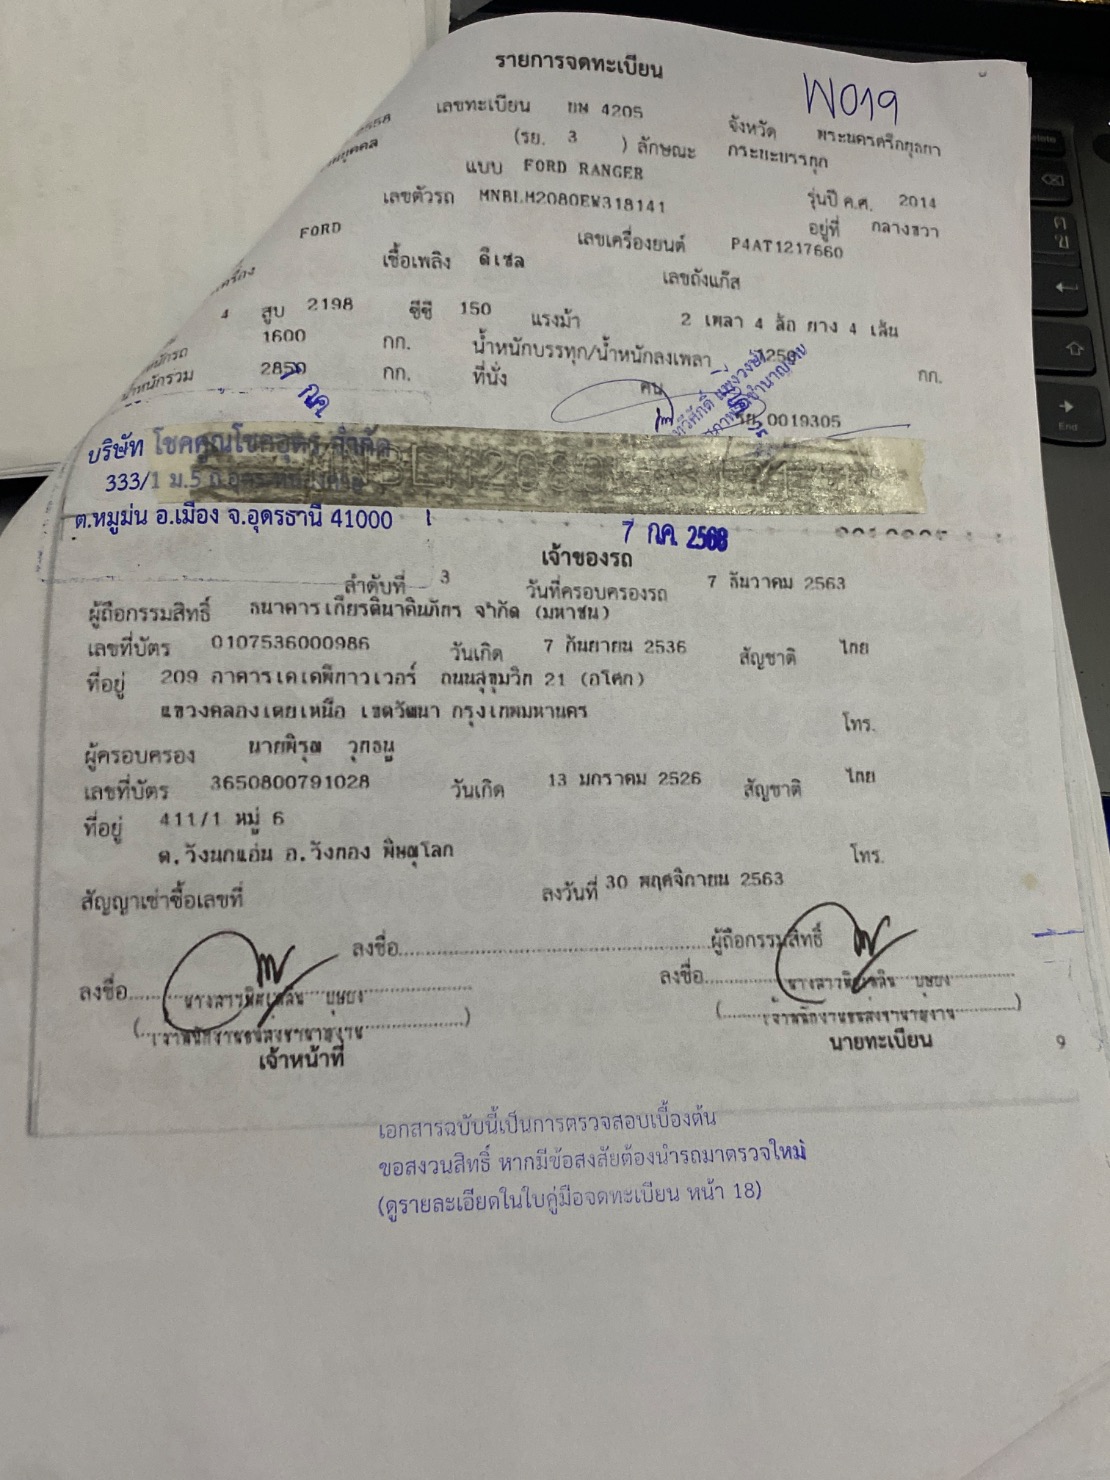 รายการจดทะเบียน
W019
เลขทะเบียน 4205 จังหวัด พระนครศรีอยุธยา
(รย. 3 ) ลักษณะ กระบะบรรทุก
แบบ FORD RANGER
เลขตัวรถ MNBLM2080EW318141 รุ่นปี ค.ศ. 2014
FORD เลขเครื่องยนต์ P4AT1217660 อยู่ที่ กลางขวา
เชื้อเพลิง ดีเซล เลขถังแก๊ส
4 สูบ 2198 ซีซี 150 แรงม้า 2 เพลา 4 ล้อ ยาง 4 เส้น
1600 กก. น้ำหนักบรรทุก/น้ำหนักลงเพลา 1250 กก.
น้ำหนักรวม 2850 กก. ที่นั่ง คน
0019305
บริษัท โชคคูณโชคอุดร จำกัด
333/1 ม.5
ต.หมูม่น อ.เมือง จ.อุดรธานี 41000
7 กค. 2568
เจ้าของรถ
ลำดับที่ 3 วันที่ครอบครองรถ 7 ธันวาคม 2563
ผู้ถือกรรมสิทธิ์ ธนาคารเกียรตินาคินภัทร จำกัด (มหาชน)
เลขที่บัตร 0107536000986 วันเกิด 7 กันยายน 2536 สัญชาติ ไทย
ที่อยู่ 209 อาคารเคเคพีทาวเวอร์ ถนนสุขุมวิท 21 (อโศก)
แขวงคลองเตยเหนือ เขตวัฒนา กรุงเทพมหานคร โทร.
ผู้ครอบครอง นายพิรุฒ
เลขที่บัตร 3650800791028 วันเกิด 13 มกราคม 2526 สัญชาติ ไทย
ที่อยู่ 411/1 หมู่ 6
ต.วังนกแอ่น อ.วังทอง พิษณุโลก โทร.
สัญญาเช่าซื้อเลขที่ ลงวันที่ 30 พฤศจิกายน 2563
ลงชื่อ ผู้ถือกรรมสิทธิ์
ลงชื่อ นางสาว บุษยง ลงชื่อ นางสาว บุษยง
(เจ้าพนักงานขนส่งชำนาญงาน) (เจ้าพนักงานขนส่งชำนาญงาน)
เจ้าหน้าที่ นายทะเบียน 9
เอกสารฉบับนี้เป็นการตรวจสอบเบื้องต้น
ขอสงวนสิทธิ์ หากมีข้อสงสัยต้องนำรถมาตรวจใหม่
(ดูรายละเอียดในใบคู่มือจดทะเบียน หน้า 18)